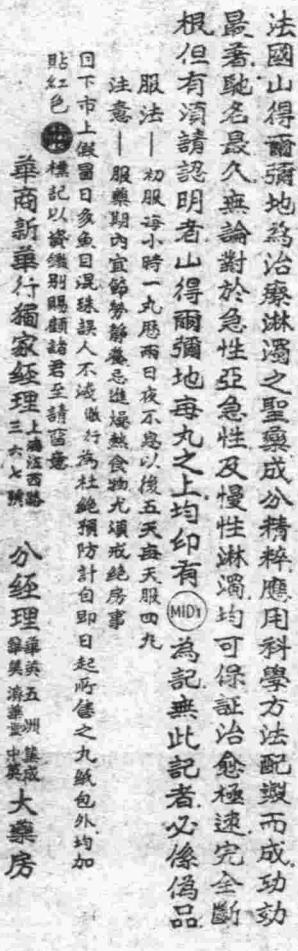 法國山得爾彌地為治療淋濁之聖藥成分精粹應用科學方法配製而成功効
最著馳名最久無論對於急性亞急性及慢性淋濁均可保証治愈極速完全斷
根但有須請認明者山得爾彌地每丸之上均印有MIDY為記無此記者必係偽品
服法—初服每小時一丸歷兩日夜不息以後五天每天服四丸
注意—服藥期內宜節勞靜養忌進燥熱食物尤須戒絕房事
目下市上假冒日多魚目混珠誤人不淺敝行為杜絕預防計自即日起所售之丸紙包外均加
貼紅色標記以資識別賜顧諸君至請留意
華商新華行獨家經理 上海江西路三六七號 分經理 華英 五洲 集成 華美 濟華堂 中英 大藥房